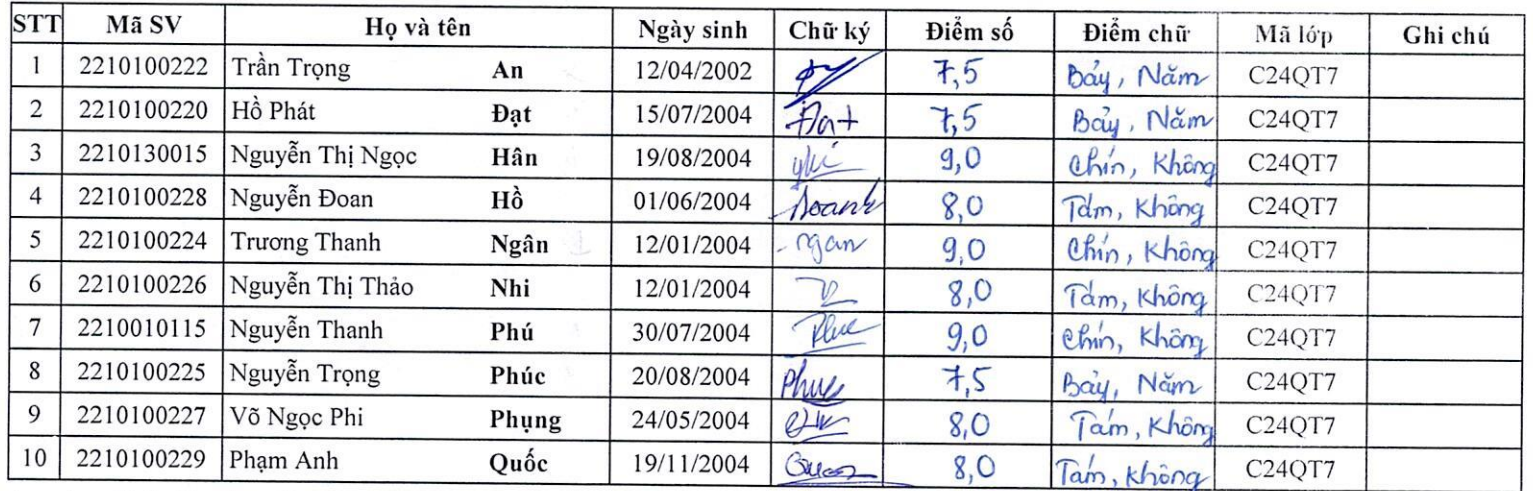 STT Mã SV Họ và tên Ngày sinh Chữ ký Điểm số Điểm chữ Mã lớp Ghi chú
1 2210100222 Trần Trọng An 12/04/2002 7,5 Bảy, Năm C24QT7
2 2210100220 Hồ Phát Đạt 15/07/2004 Đạt 7,5 Bảy, Năm C24QT7
3 2210130015 Nguyễn Thị Ngọc Hân 19/08/2004 9,0 Chín, Không C24QT7
4 2210100228 Nguyễn Đoan Hồ 01/06/2004 8,0 Tám, Không C24QT7
5 2210100224 Trương Thanh Ngân 12/01/2004 ngan 9,0 Chín, Không C24QT7
6 2210100226 Nguyễn Thị Thảo Nhi 12/01/2004 8,0 Tám, Không C24QT7
7 2210010115 Nguyễn Thanh Phú 30/07/2004 9,0 Chín, Không C24QT7
8 2210100225 Nguyễn Trọng Phúc 20/08/2004 Phuc 7,5 Bảy, Năm C24QT7
9 2210100227 Võ Ngọc Phi Phụng 24/05/2004 8,0 Tám, Không C24QT7
10 2210100229 Phạm Anh Quốc 19/11/2004 8,0 Tám, Không C24QT7